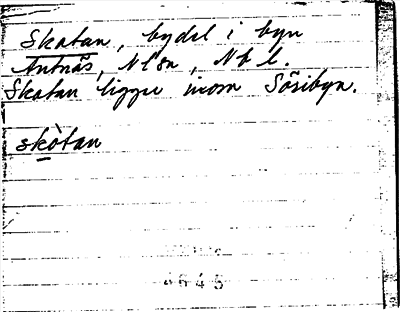 Skatan, bydel i byn
Antnäs, Nlsn, Nb l.
Skatan ligger inom Söribyn.
skòtan
6645